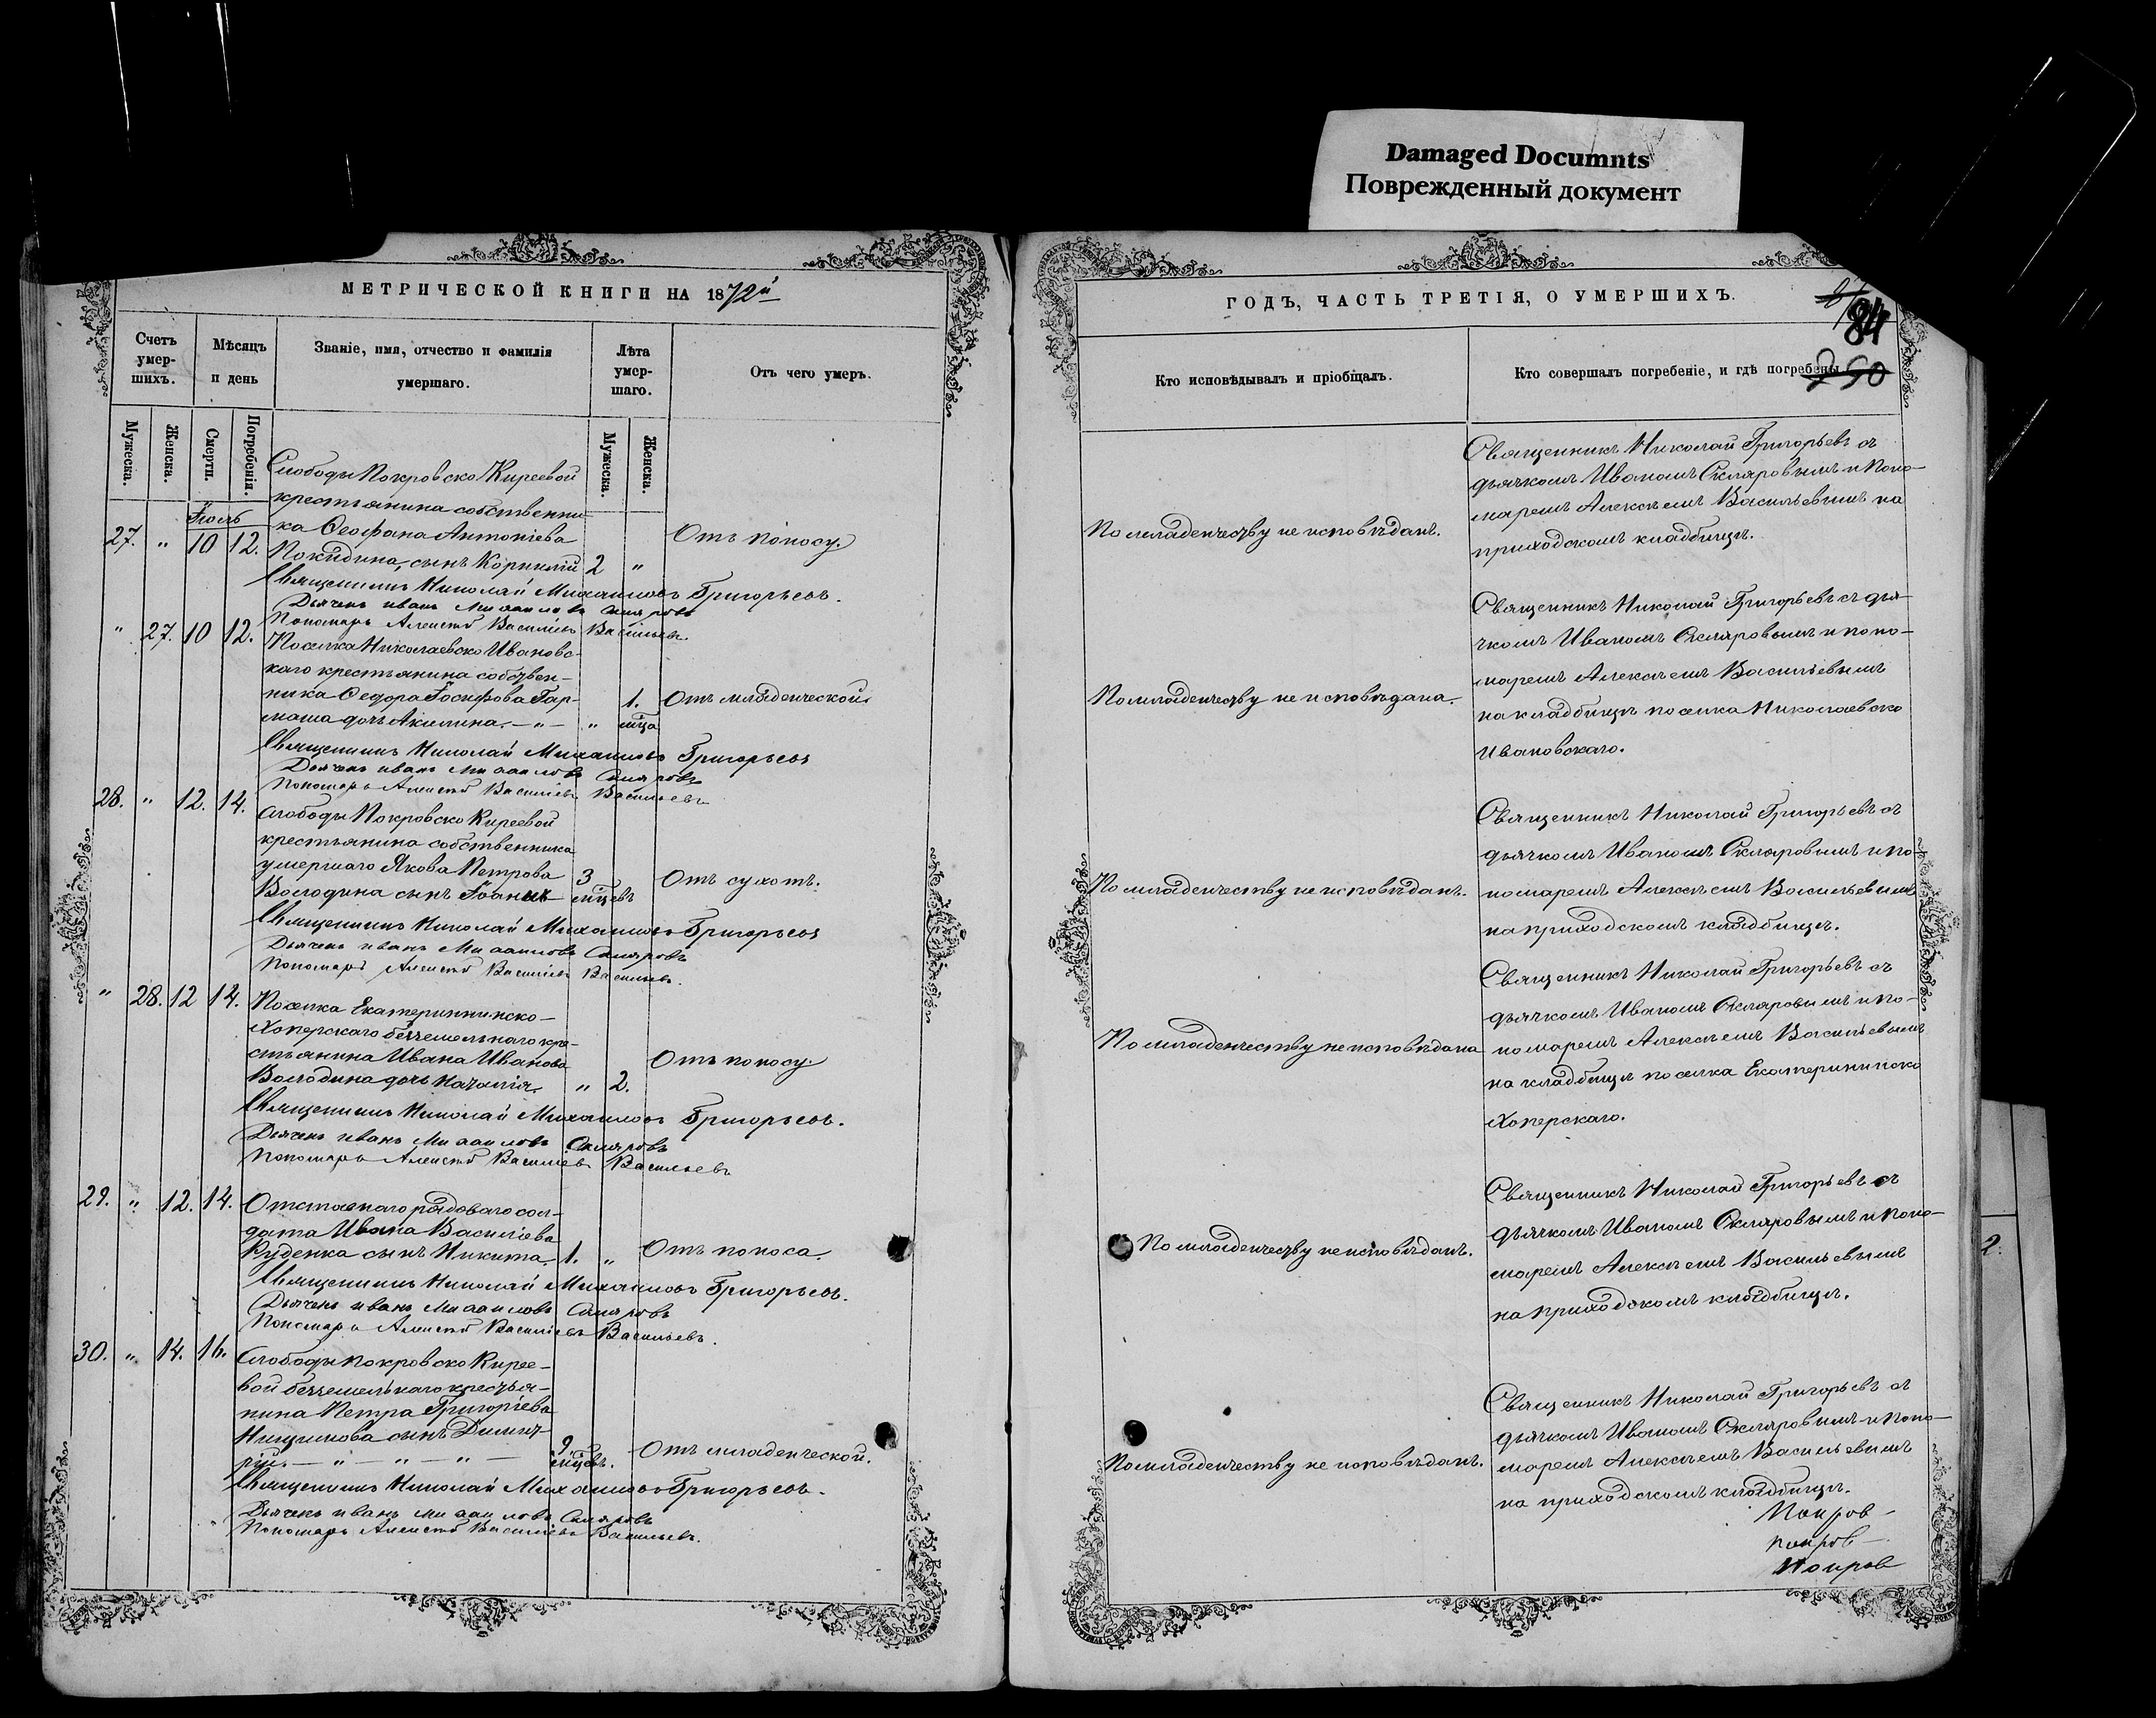 Damaged Documnts
Поврежденный документ
МЕТРИЧЕСКОЙ КНИГИ НА 1872й
Счетъ умер-шихъ.
Мѣсяцъ и день
Званіе, имя, отчество и фамилія умершаго.
Лѣта умер-шаго.
Отъ чего умеръ.
Мужеска.
Женска.
Смерти.
Погребенія.
Мужеска.
Женска.
Іюль
Слободы Покровско Киреевой
крестьянина собственни-
ка Ѳеофана Антоніева
27. " 10 12. Покидина, сынъ Корнилій 2 " Отъ поносу.
Священникъ Николай Михаиловъ Григорьевъ.
Дьячекъ Иванъ Михаиловъ Скляровъ
Пономарь Алексѣй Василіевъ Васильевъ.
" 27. 10 12. Поселка Николаевско Ивановс-
каго крестьянина собствен-
ника Ѳедора Іосифова Гар-
маша дочь Акилина. — " — " 1. мца Отъ младенческой
Священникъ Николай Михаиловъ Григорьевъ
Дьячекъ Иванъ Михаиловъ Скляровъ
Пономарь Алексѣй Василіевъ Васильевъ
28. " 12. 14. Слободы Покровско Киреевой
крестьянина собственника
умершаго Якова Петрова
Володина сынъ Іоаннъ 3 мцевъ Отъ сухотъ.
Священникъ Николай Михаиловъ Григорьевъ
Дьячекъ Иванъ Михаиловъ Скляровъ
Пономарь Алексѣй Василіевъ Васильевъ.
" 28. 12 14. Поселка Екатерининско-
Хоперскаго безземельнаго кре-
стьянина Ивана Иванова
Володина дочь Наталія " 2. Отъ поносу
Священникъ Николай Михаиловъ Григорьевъ.
Дьячекъ Иванъ Михаиловъ Скляровъ
Пономарь Алексѣй Василіевъ Васильевъ
29. " 12. 14. Отставнаго рядоваго сол-
дата Ивана Василіева
Руденка сынъ Никита 1. " Отъ поноса.
Священникъ Николай Михаиловъ Григорьевъ.
Дьячекъ Иванъ Михаиловъ Скляровъ
Пономарь Алексѣй Василіевъ Васильевъ.
30. " 14. 16. Слободы Покровско Кирее-
вой безземельнаго крестья-
нина Петра Григоріева
сынъ Димит-
рій. — " — " — " — 9 мцевъ. Отъ младенческой.
Священникъ Николай Михаиловъ Григорьевъ.
Дьячекъ Иванъ Михаиловъ Скляровъ
Пономарь Алексѣй Василіевъ Васильевъ.
ГОДЪ, ЧАСТЬ ТРЕТІЯ, О УМЕРШИХЪ.
84
250
Кто исповѣдывалъ и пріобщалъ.
Кто совершалъ погребеніе, и гдѣ погребены.
По младенчеству не исповѣданъ.
Священникъ Николай Григорьевъ съ
дьячкомъ Иваномъ Скляровымъ и поно-
маремъ Алексѣемъ Васильевымъ на
приходскомъ кладбищѣ.
По младенчеству не исповѣдана.
Священникъ Николай Григорьевъ съ дья-
чкомъ Иваномъ Скляровымъ и поно-
маремъ Алексѣемъ Васильевымъ
на кладбищѣ поселка Николаевско
Ивановскаго.
По младенчеству не исповѣданъ.
Священникъ Николай Григорьевъ съ
дьячкомъ Иваномъ Скляровымъ и по-
номаремъ Алексѣемъ Васильевымъ
на приходскомъ кладбищѣ.
По младенчеству не исповѣдана
Священникъ Николай Григорьевъ съ
дьячкомъ Иваномъ Скляровымъ и по-
номаремъ Алексѣемъ Васильевымъ
на кладбищѣ поселка Екатерининско
Хоперскаго.
По младенчеству не исповѣданъ.
Священникъ Николай Григорьевъ съ
дьячкомъ Иваномъ Скляровымъ и поно-
маремъ Алексѣемъ Васильевымъ
на приходскомъ кладбищѣ.
По младенчеству не исповѣданъ.
Священникъ Николай Григорьевъ съ
дьячкомъ Иваномъ Скляровымъ и поно-
маремъ Алексѣемъ Васильевымъ
на приходскомъ кладбищѣ.
Покров-
покров-
Покров
2.